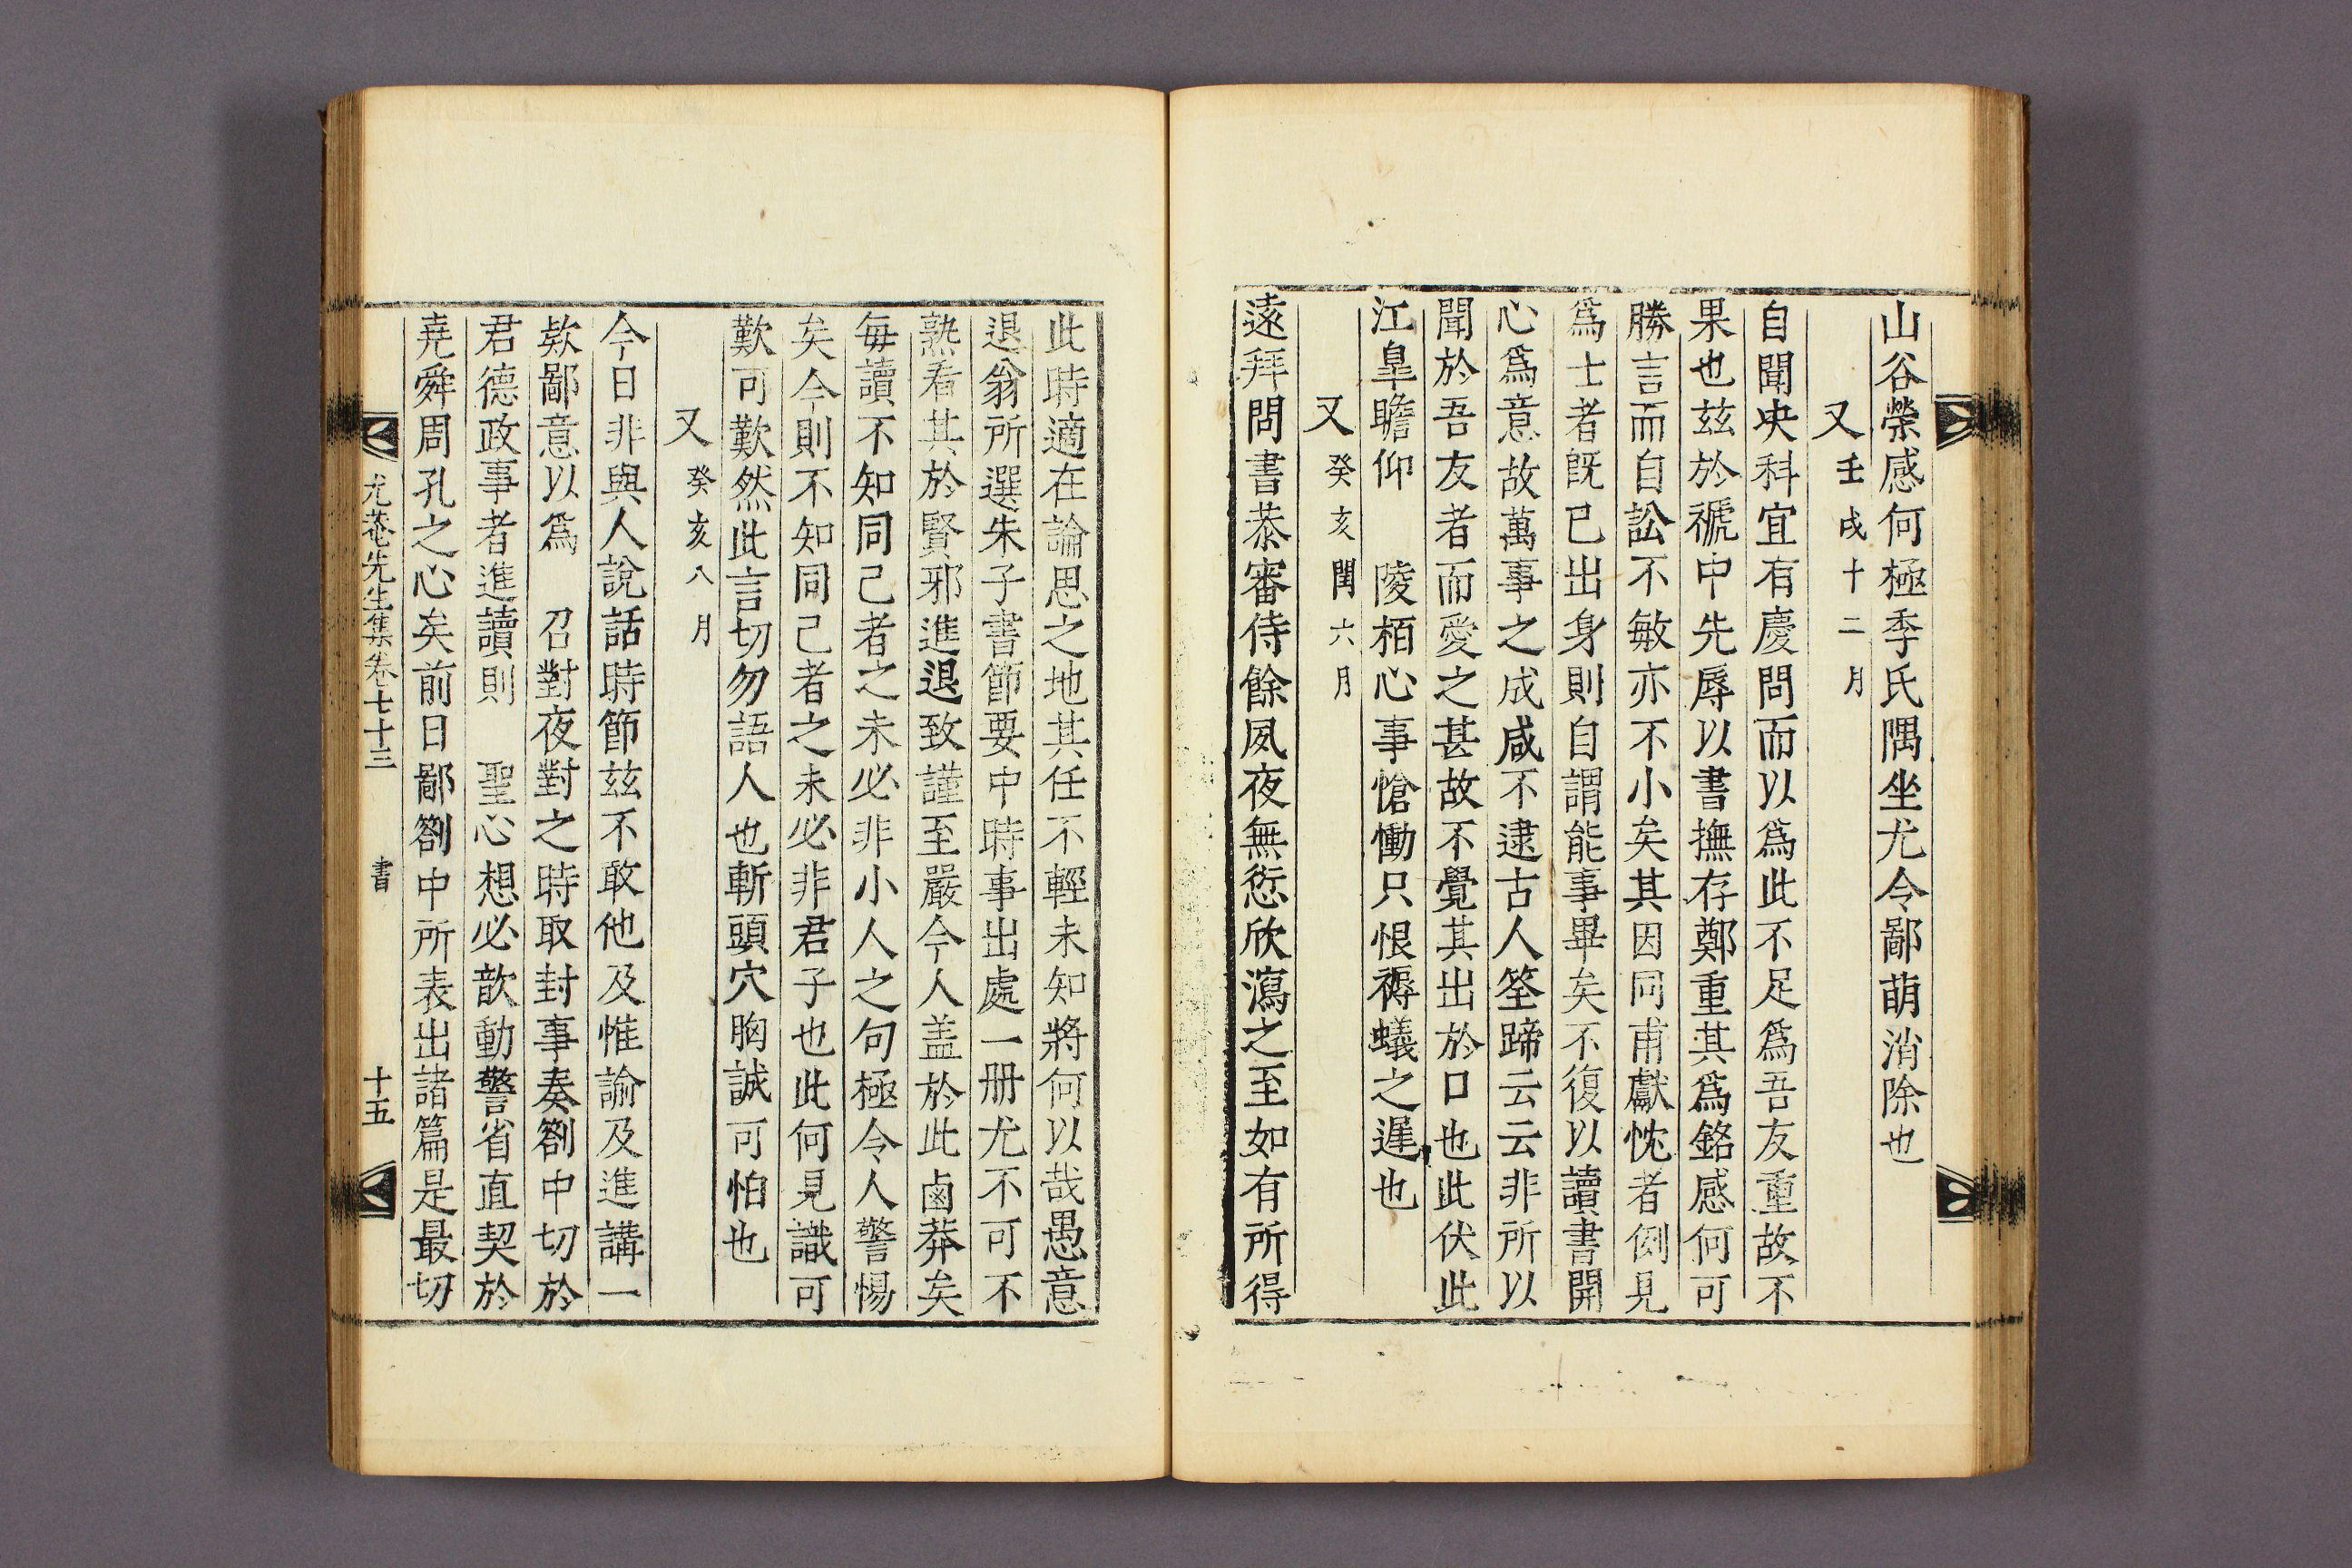 山谷榮感何極季氏隅坐尤令鄙萌消除也
又壬戌十二月
自聞央科宜有慶問而以爲此不足爲吾友重故不
果也玆於褫中先辱以書撫存鄭重其爲銘感何可
勝言而自訟不敏亦不小矣其因同甫獻忱者例見
爲士者旣已出身則自謂能事畢矣不復以讀書開
心爲意故萬事之成咸不逮古人筌蹄云云非所以
聞於吾友者而愛之甚故不覺其出於口也此伏此
江皐瞻仰 陵栢心事愴慟只恨褥蟻之遲也
又癸亥閏六月
遠拜問書恭審侍餘夙夜無愆欣瀉之至如有所得
此時適在論思之地其任不輕未知將何以哉愚意
退翁所選朱子書節要中時事出處一册尤不可不
熟看其於賢邪進退致謹至嚴今人盖於此鹵莽矣
每讀不知同己者之未必非小人之句極令人警惕
矣今則不知同己者之未必非君子也此何見識可
歎可歎然此言切勿語人也斬頭穴胸誠可怕也
又癸亥八月
今日非與人說話時節玆不敢他及惟諭及進講一
欵鄙意以爲 召對夜對之時取封事奏劄中切於
君德政事者進讀則 聖心想必歆動警省直契於
堯舜周孔之心矣前日鄙劄中所表出諸篇是最切
尤菴先生集卷七十三 書 十五